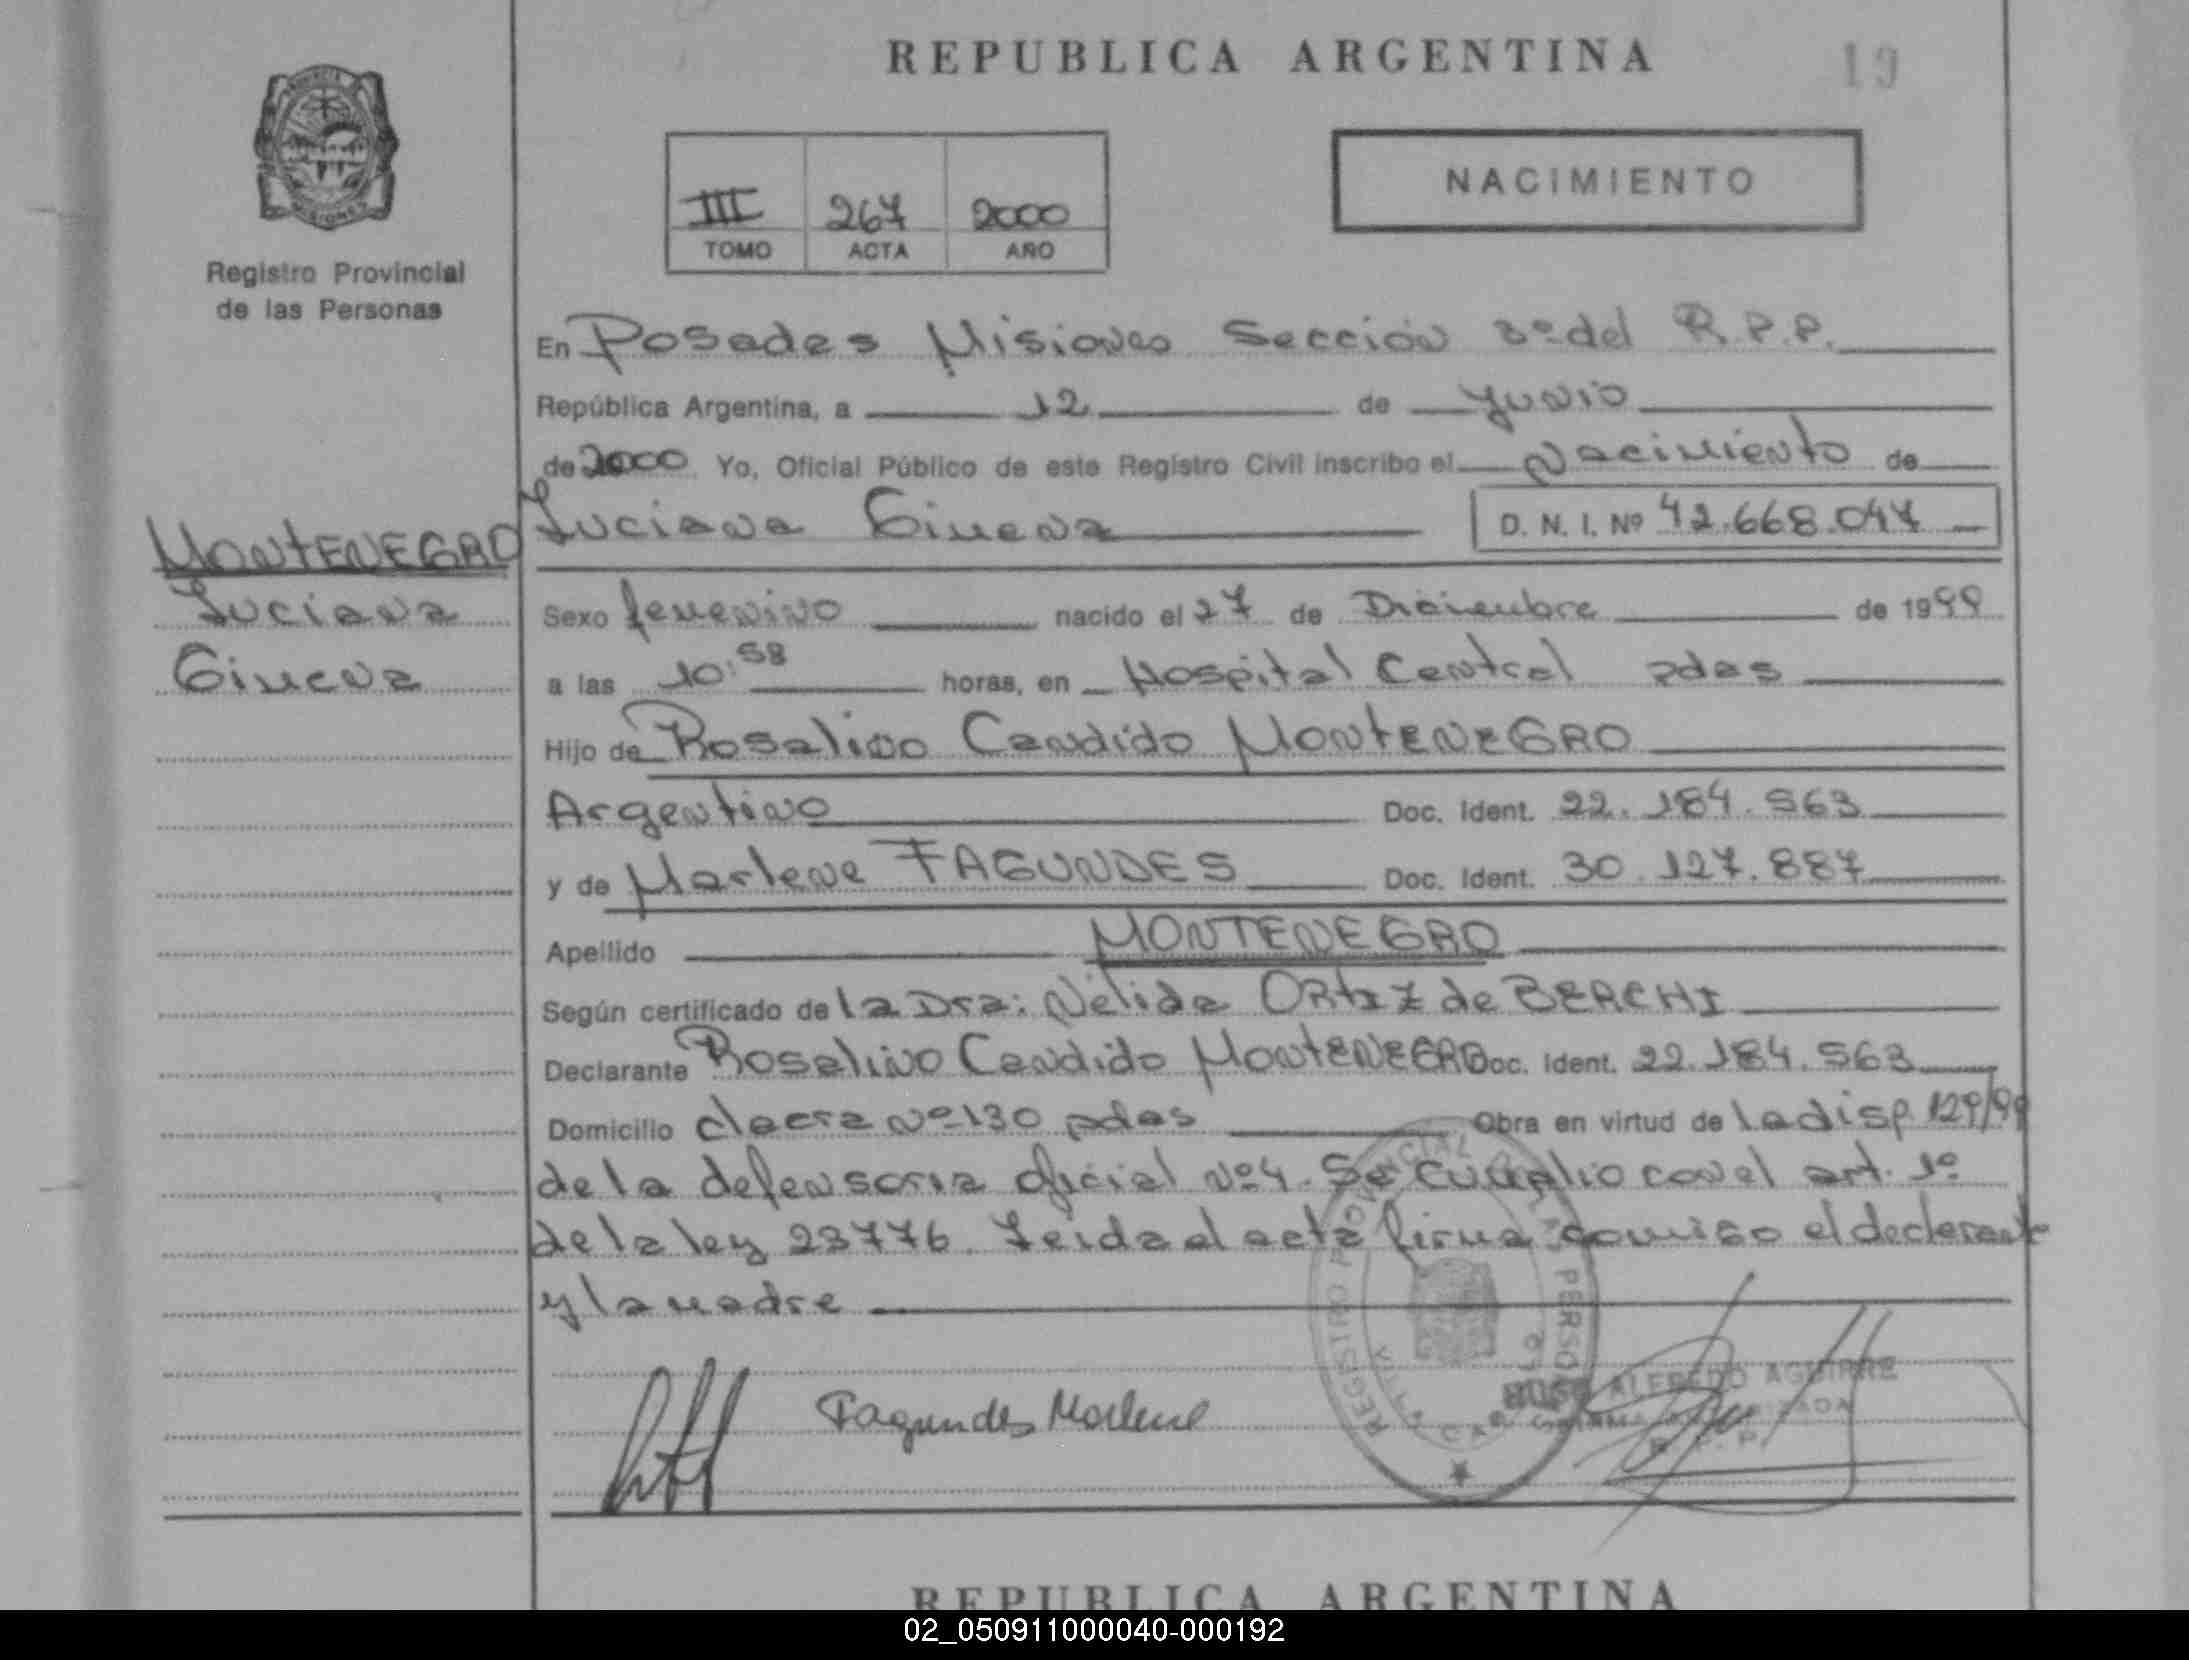 REPUBLICA ARGENTINA
19
III 267 2000
TOMO ACTA AÑO
NACIMIENTO
MISIONES
Registro Provincial
de las Personas
En Posadas Misiones Sección 3º del R.P.P.
República Argentina, a 12 de Junio
de 2000 Yo, Oficial Público de este Registro Civil inscribo el Nacimiento de
Luciana Gimena D. N. I. Nº 42.668.047
MONTENEGRO
Luciana
Gimena
Sexo femenino nacido el 27 de Diciembre de 1999
a las 10:58 horas, en Hospital Central pdas
Hijo de Rosalino Candido MONTENEGRO
Argentino Doc. Ident. 22.184.563
y de Marlene FAGUNDES Doc. Ident. 30.127.887
Apellido MONTENEGRO
Según certificado de la Dra: Nélida ORTIZ de BERCHI
Declarante Rosalino Candido MONTENEGRO Doc. Ident. 22.184.563
Domicilio chacra Nº 130 pdas Obra en virtud de la disp. 129/99
de la defensoria oficial Nº 4. Se cumplio con el art. 1º
de la ley 23776. Leida el acta firma conmigo el declarante
y la madre
Fagundes Marlene
REGISTRO PROVINCIAL PERSONAS
ALFREDO AGUIRRE
FIRMA AUTORIZADA
R. P. P.
REPUBLICA ARGENTINA
02_050911000040-000192